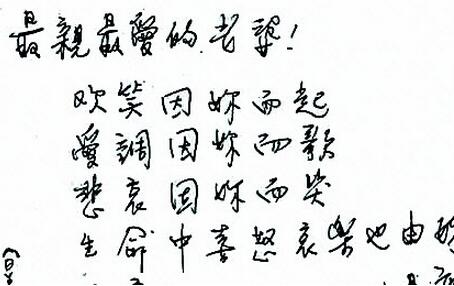 最親最愛的老婆!
欢笑因妳而起
愛調因妳而歌
悲哀因妳而哭
生命中喜怒哀樂也由